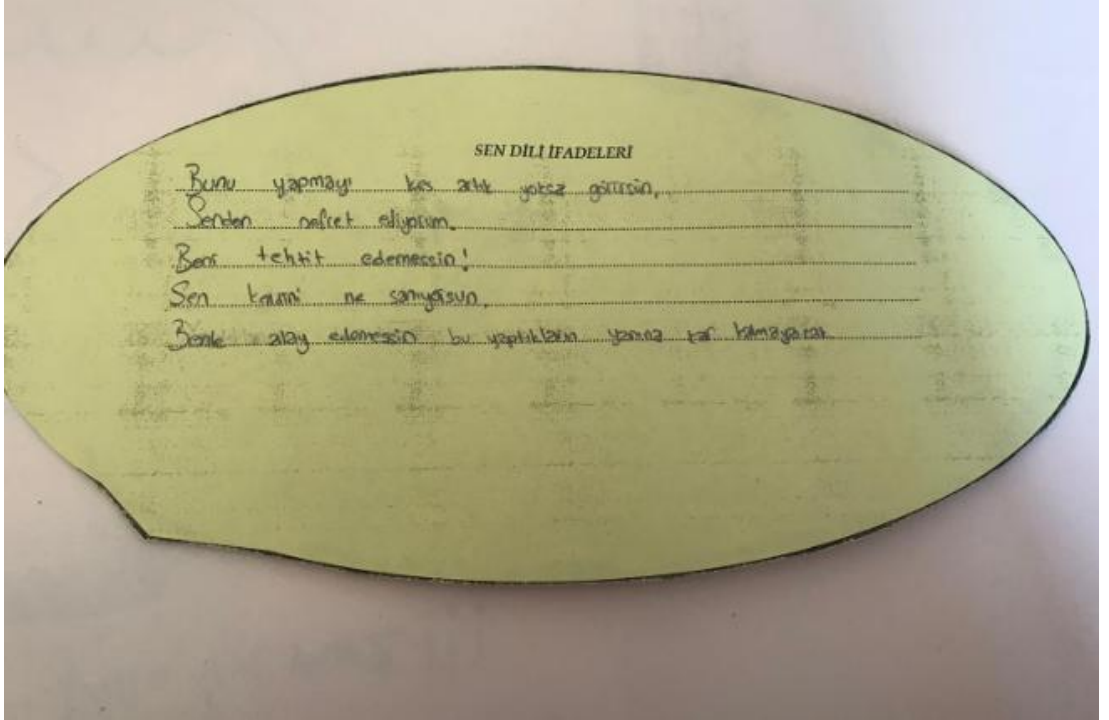 SEN DİLİ İFADELERİ
Bunu yapmayı kes artık yoksa görürsün.
Senden nefret ediyorum.
Beni tehtit edemessin!
Sen ne sanıyorsun.
Benle alay edemessin bu yaptıkların yanına kar kalmayacak